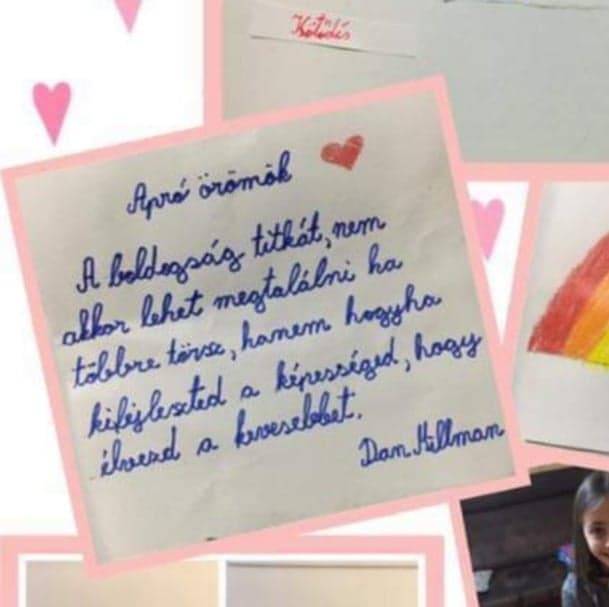 Kötődés
Apró örömök
A boldogság titkát, nem
akkor lehet megtalálni ha
többre törsz, hanem hogyha
kifejleszted a képességed, hogy
élvezd a kevesebbet.
Dan Millman